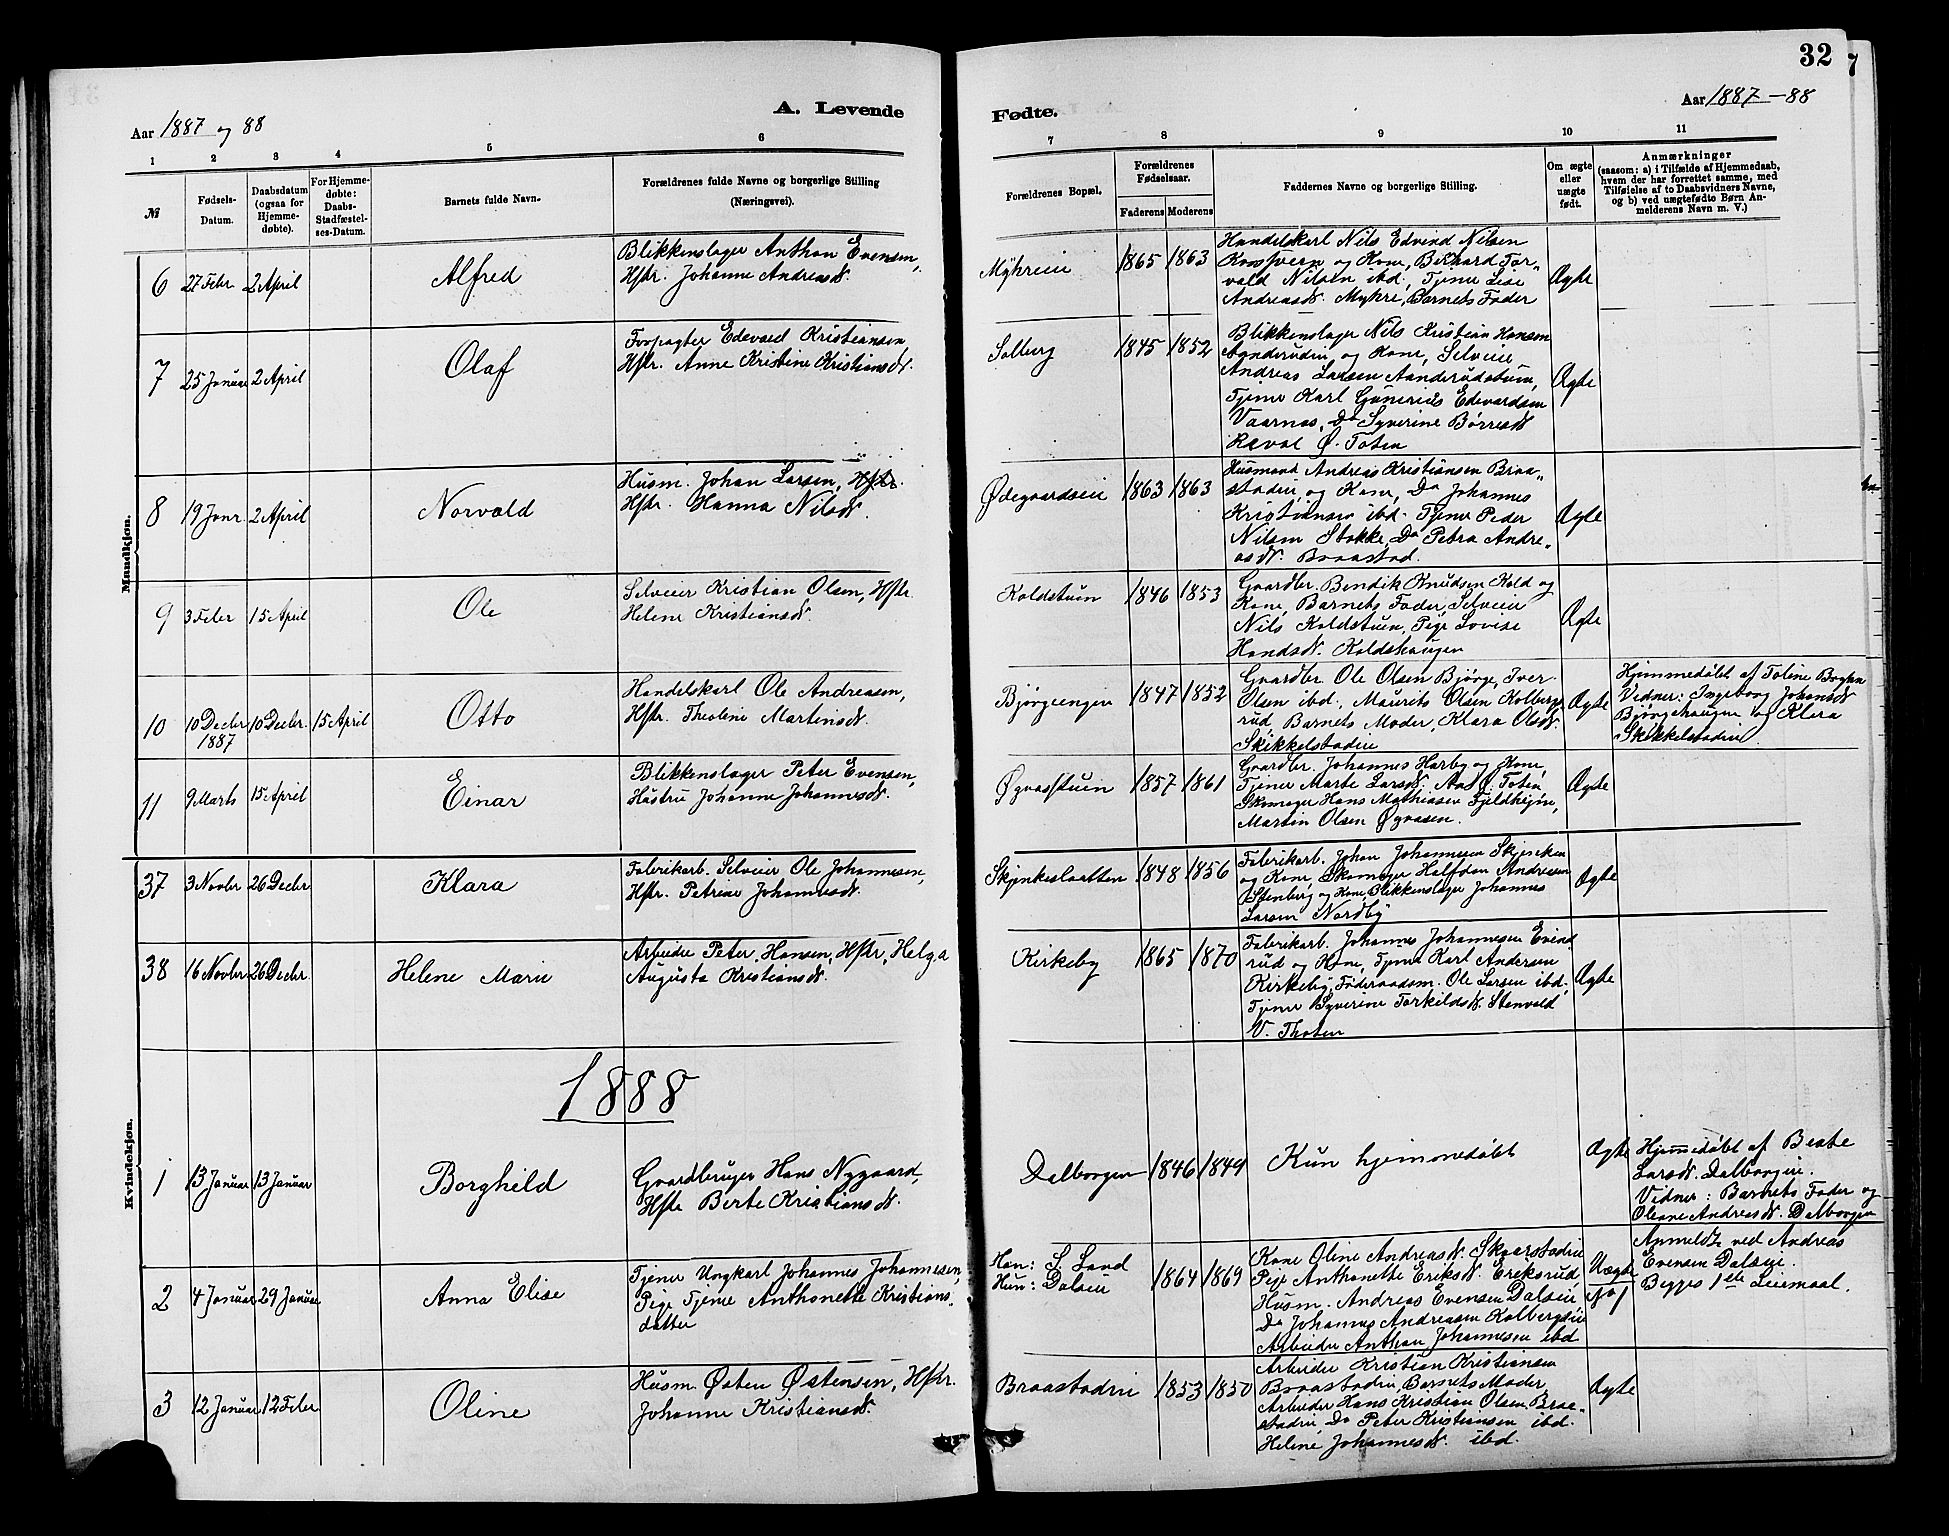 32
7
Aar 1887 og 88
A. Levende
Fødte.
Aar 1887-88
1 2 3 4 5 6
7 8 9 10 11
№
Fødsels-
Datum.
Daabsdatum
(ogsaa for
Hjemme-
døbte).
For Hjemme-
døbte:
Daabs-
Stadfæstel-
ses-Datum.
Barnets fulde Navn.
Forældrenes fulde Navne og borgerlige Stilling
(Næringsvei).
Forældrenes Bopæl.
Forældrenes
Fødselsaar.
Faderens Moderens
Faddernes Navne og borgerlige Stilling.
Om ægte
eller
uægte
født.
Anmærkninger
(saasom: a) i Tilfælde af Hjemmedaab,
hvem der har forrettet samme, med
Tilføielse af to Daabsvidners Navne,
og b) ved uægtefødte Børn An-
melderens Navn m. V.)
Mandkjøn.
6 27 Febr 2 April Alfred
Blikkenslager Anthon Evensen,
Hstr. Johanne Andreasd.
Myhreie 1865 1863
Handelskarl Nils Edvind Nilsen
og Kone, Berhard Tor-
vald Nilsen ibd, Tjener Lise
Andreasd. Myhre, Barnets Fader
Ægte
7 25 Januar 2 April Olaf
Forpagter Edevard Kristiansen,
Hstr. Anne Kristine Kristiansd.
Solberg 1845 1852
Blikkenslager Nils Kristian Hansen
og Kone, Selveier
Andreas Larsen Aanderudstuen,
Tjener Karl Gunerius Edevardsen
Vaarnas, Do Syverine Børresd
Ræval Ø. Toten
Ægte
8 19 Janr. 2 April Norvald
Husm. Johan Larsen, Hstr.
Hstr. Hanna Nilsd.
Ødegaardseie 1863 1863
Husmand Andreas Kristiansen Braa-
stadeie og Kone, Do Johannes
Kristiansen ibd. Tjener Peder
Nilsen Stokke, Do Petra Andre-
asd. Braastad.
Ægte
9 3 Feber 15 April Ole
Selveier Kristian Olsen, Hstr.
Helene Kristiansd.
Koldstuen 1846 1853
Gaardbr. Bendik Knudsen Kold og
Kone, Barnets Fader, Selveier
Nils Koldstuen, Pige Lovise
Hansd. Koldshaugen
Ægte
10 10 Decbr 1887 10 Decbr. 15 April Otto
Handelskarl Ole Andreasen,
Hstr. Theoline Martinsd.
Bjørgeengen 1847 1852
Gaardbr. Ole Olsen Bjørge, Iver
Olsen ibd., Maurits Olsen Kolbergs-
rud, Barnets Moder, Klara Olsd.
Skikkelstadeie
Ægte
Hjemmedøbt af Toline
Vidner: Ingeborg Johansd
Bjørgehaugen og Klara
Skikkelstadeie
11 9 Marts 15 April Einar
Blikkenslager Peter Evensen,
Hustru Johanne Johannesd.
Øgvasstuen 1857 1861
Gaardbr. Johannes Harby og Kone,
Tjener Marte Larsd. Aas Ø. Toten,
Skomager Hans Mathiasen Fjeldhøjne,
Martin Olsen Øgvasen.
Ægte
Kvindekjøn.
37 3 Novbr 26 Decbr. Klara
Fabrikarb. Selveier Ole Johannesen,
Hstr. Petrine Johannesd.
Skjenkeslaatten 1848 1856
Fabrikarb. Johan Johannesen Skjenken
og Kone, Skomager Halfdan Andresen
Stenberg og Kone, Blikkenslager Johannes
Larsen Nordby
Ægte
38 16 Novbr 26 Decbr. Helene Marie
Arbeider Peter Hansen, Hstr, Helga
Augusta Kristiansd.
Kirkeby 1865 1870
Fabrikarb. Johannes Johannesen Evind
rud og Kone, Tjener Karl Andersen
Kirkeby, Føderaadsm. Ole Larsen ibd,
Tjener Syverine Torkildsd. Stenvold
V. Thoten
Ægte
1888
1 13 Januar 13 Januar Borghild
Gaardbruger Hans Nygaard,
Hstr Berte Kristiansd.
Dalborgen 1846 1849
Kun hjemmedøbt
Ægte
Hjemmedøbt af Beate
Larsd. Dalborgeie.
Vidner: Barnets Fader og
Oleane Andreasd. Dalborgen
2 4 Januar 29 Januar Anna Elise
Tjener Ungkarl Johannes Johannesen,
Pige Tjener Anthonette Kristians-
datter
Han: S. Land
Hun: Dalseie
1864 1869
Kone Oline Andreasd. Skaarstadeie
Pige Anthonette Eriksd. Eriksrud,
Husm. Andreas Evensen Dalseie,
Do Johannes Andreasen Kolbergseie
Arbeider Anthon Johannesen ibd
Uægte
No 1
Anmeldt ved Andreas
Evensen Dalseie.
Begges 1ste Leiermaal.
3 12 Januar 12 Feber Oline
Husm. Østen Østensen, Hstr.
Johanne Kristiansd.
Braastadeie 1853 1850
Arbeider Kristian Kristiansen
Braastadeie, Barnets Moder,
Arbeider Hans Kristian Olsen Braa-
stadeie, Do Peter Kristiansen ibd.
Helene Johannesd. ibd.
Ægte